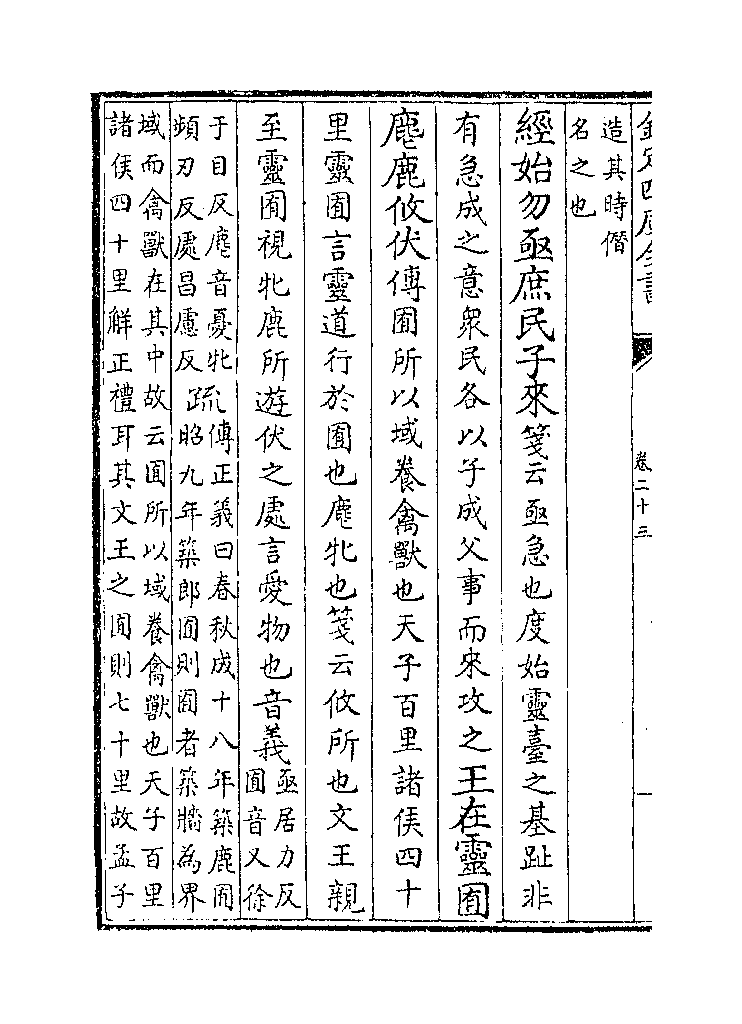 欽定四庫全書
卷二十三
造其時僭
名之也
經始勿亟庶民子來箋云亟急也度始靈臺之基趾非
有急成之意衆民各以子成父事而來攻之王在靈囿
麀鹿攸伏傳囿所以域養禽獸也天子百里諸侯四十
里靈囿言靈道行於囿也麀牝也箋云攸所也文王親
至靈囿視牝鹿所遊伏之處言愛物也音義亟居力反
囿音又徐
于目反麀音憂牝
頻刃反處昌慮反疏傳正義曰春秋成十八年築鹿囿
昭九年築郎囿則囿者築牆為界
域而禽獸在其中故云囿所以域養禽獸也天子百里
諸侯四十里解正禮耳其文王之囿則七十里故孟子